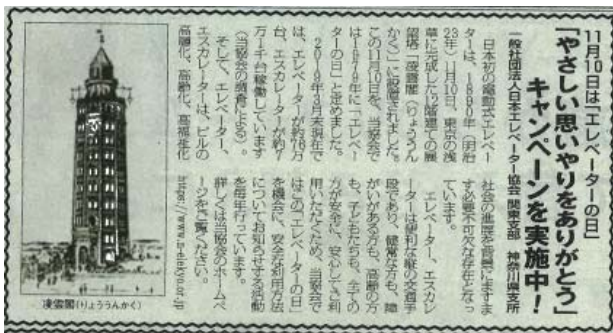 11月10日は「エレベーターの日」
「やさしい思いやりをありがとう」
キャンペーンを実施中！
一般社団法人日本エレベーター協会 関東支部 神奈川県支所
日本初の電動式エレベー
ターは、1890年（明治
23年）11月10日、東京の浅
草に完成した12階建ての展
望塔「凌雲閣（りょううん
かく）」に設置されました。
この11月10日を、当協会で
は1979年に「エレベー
ターの日」と定めました。
2019年3月末現在で
は、エレベーターが約76万
台、エスカレーターが約7
万1千台稼働しています
（当協会の調査による）。
そして、エレベーター、
エスカレーターは、ビルの
高層化、高齢化、高福祉化
社会の進展を背景にますま
す必要不可欠な存在となっ
ています。
エレベーター、エスカレ
ーターは便利な縦の交通手
段であり、健常な方も、障
がいがある方も、高齢の方
も、子どもたちも、全ての
方が安全に、安心してご利
用いただくため、当協会で
はこの「エレベーターの日」
を機会に、安全な利用方法
についてお知らせする活動
を毎年行っています。
詳しくは当協会のホームペ
ージをご覧ください。
https://www.n-elekyo.or.jp
凌雲閣（りょううんかく）